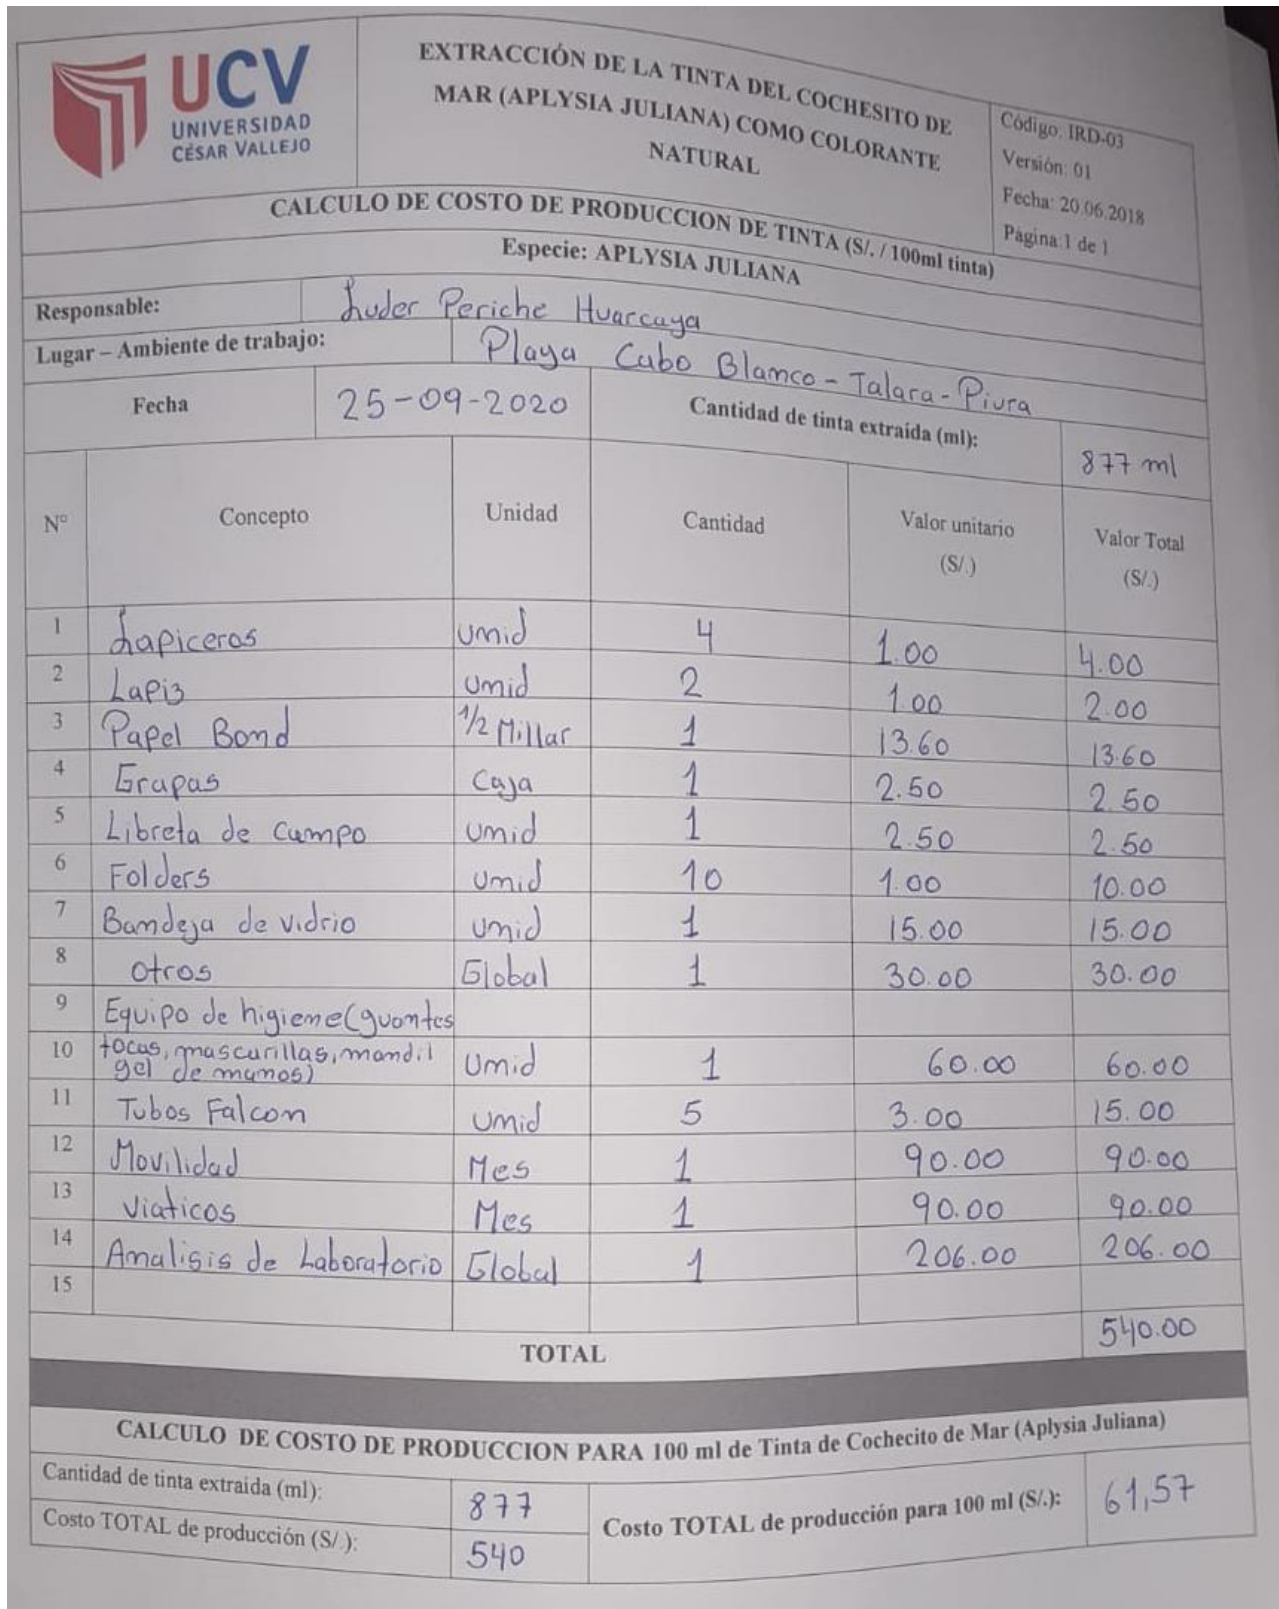 UCV
UNIVERSIDAD
CÉSAR VALLEJO
EXTRACCIÓN DE LA TINTA DEL COCHESITO DE
MAR (APLYSIA JULIANA) COMO COLORANTE
NATURAL
Código: IRD-03
Versión: 01
Fecha: 20.06.2018
Página:1 de 1
CALCULO DE COSTO DE PRODUCCION DE TINTA (S/. / 100ml tinta)
Especie: APLYSIA JULIANA
Responsable: Luder Periche Huarcaya
Lugar – Ambiente de trabajo: Playa Cabo Blanco - Talara - Piura
Fecha 25-09-2020 Cantidad de tinta extraida (ml): 877 ml
N° Concepto Unidad Cantidad Valor unitario (S/.) Valor Total (S/.)
1 Lapiceros Unid 4 1.00 4.00
2 Lapiz Unid 2 1.00 2.00
3 Papel Bond 1/2 Millar 1 13.60 13.60
4 Grapas Caja 1 2.50 2.50
5 Libreta de Campo Unid 1 2.50 2.50
6 Folders Unid 10 1.00 10.00
7 Bandeja de vidrio Unid 1 15.00 15.00
8 Otros Global 1 30.00 30.00
9 Equipo de higiene (guantes
10 tocas, mascarillas, mandil gel de manos) Unid 1 60.00 60.00
11 Tubos Falcon Unid 5 3.00 15.00
12 Movilidad Mes 1 90.00 90.00
13 Viaticos Mes 1 90.00 90.00
14 Analisis de Laboratorio Global 1 206.00 206.00
15
TOTAL 540.00
CALCULO DE COSTO DE PRODUCCION PARA 100 ml de Tinta de Cochecito de Mar (Aplysia Juliana)
Cantidad de tinta extraida (ml): 877
Costo TOTAL de producción (S/.): 540
Costo TOTAL de producción para 100 ml (S/.): 61,57